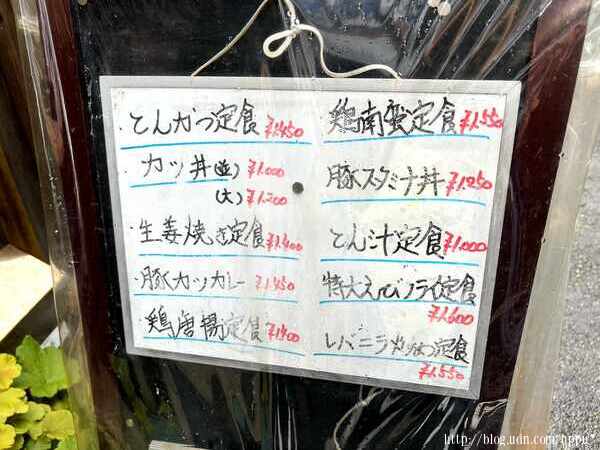 ・とんかつ定食 ¥1.450
カツ丼(並) ¥1.000
(大) ¥1.200
・生姜焼き定食 ¥1.400
・豚カツカレー ¥1.450
・鶏唐揚定食 ¥1.400
・鶏南蛮定食 ¥1.550
豚スタミナ丼 ¥1.250
・とん汁定食 ¥1.000
特大えびフライ定食
¥1.600
・レバニラ 定食
¥1.550
http://blog.udn.com/